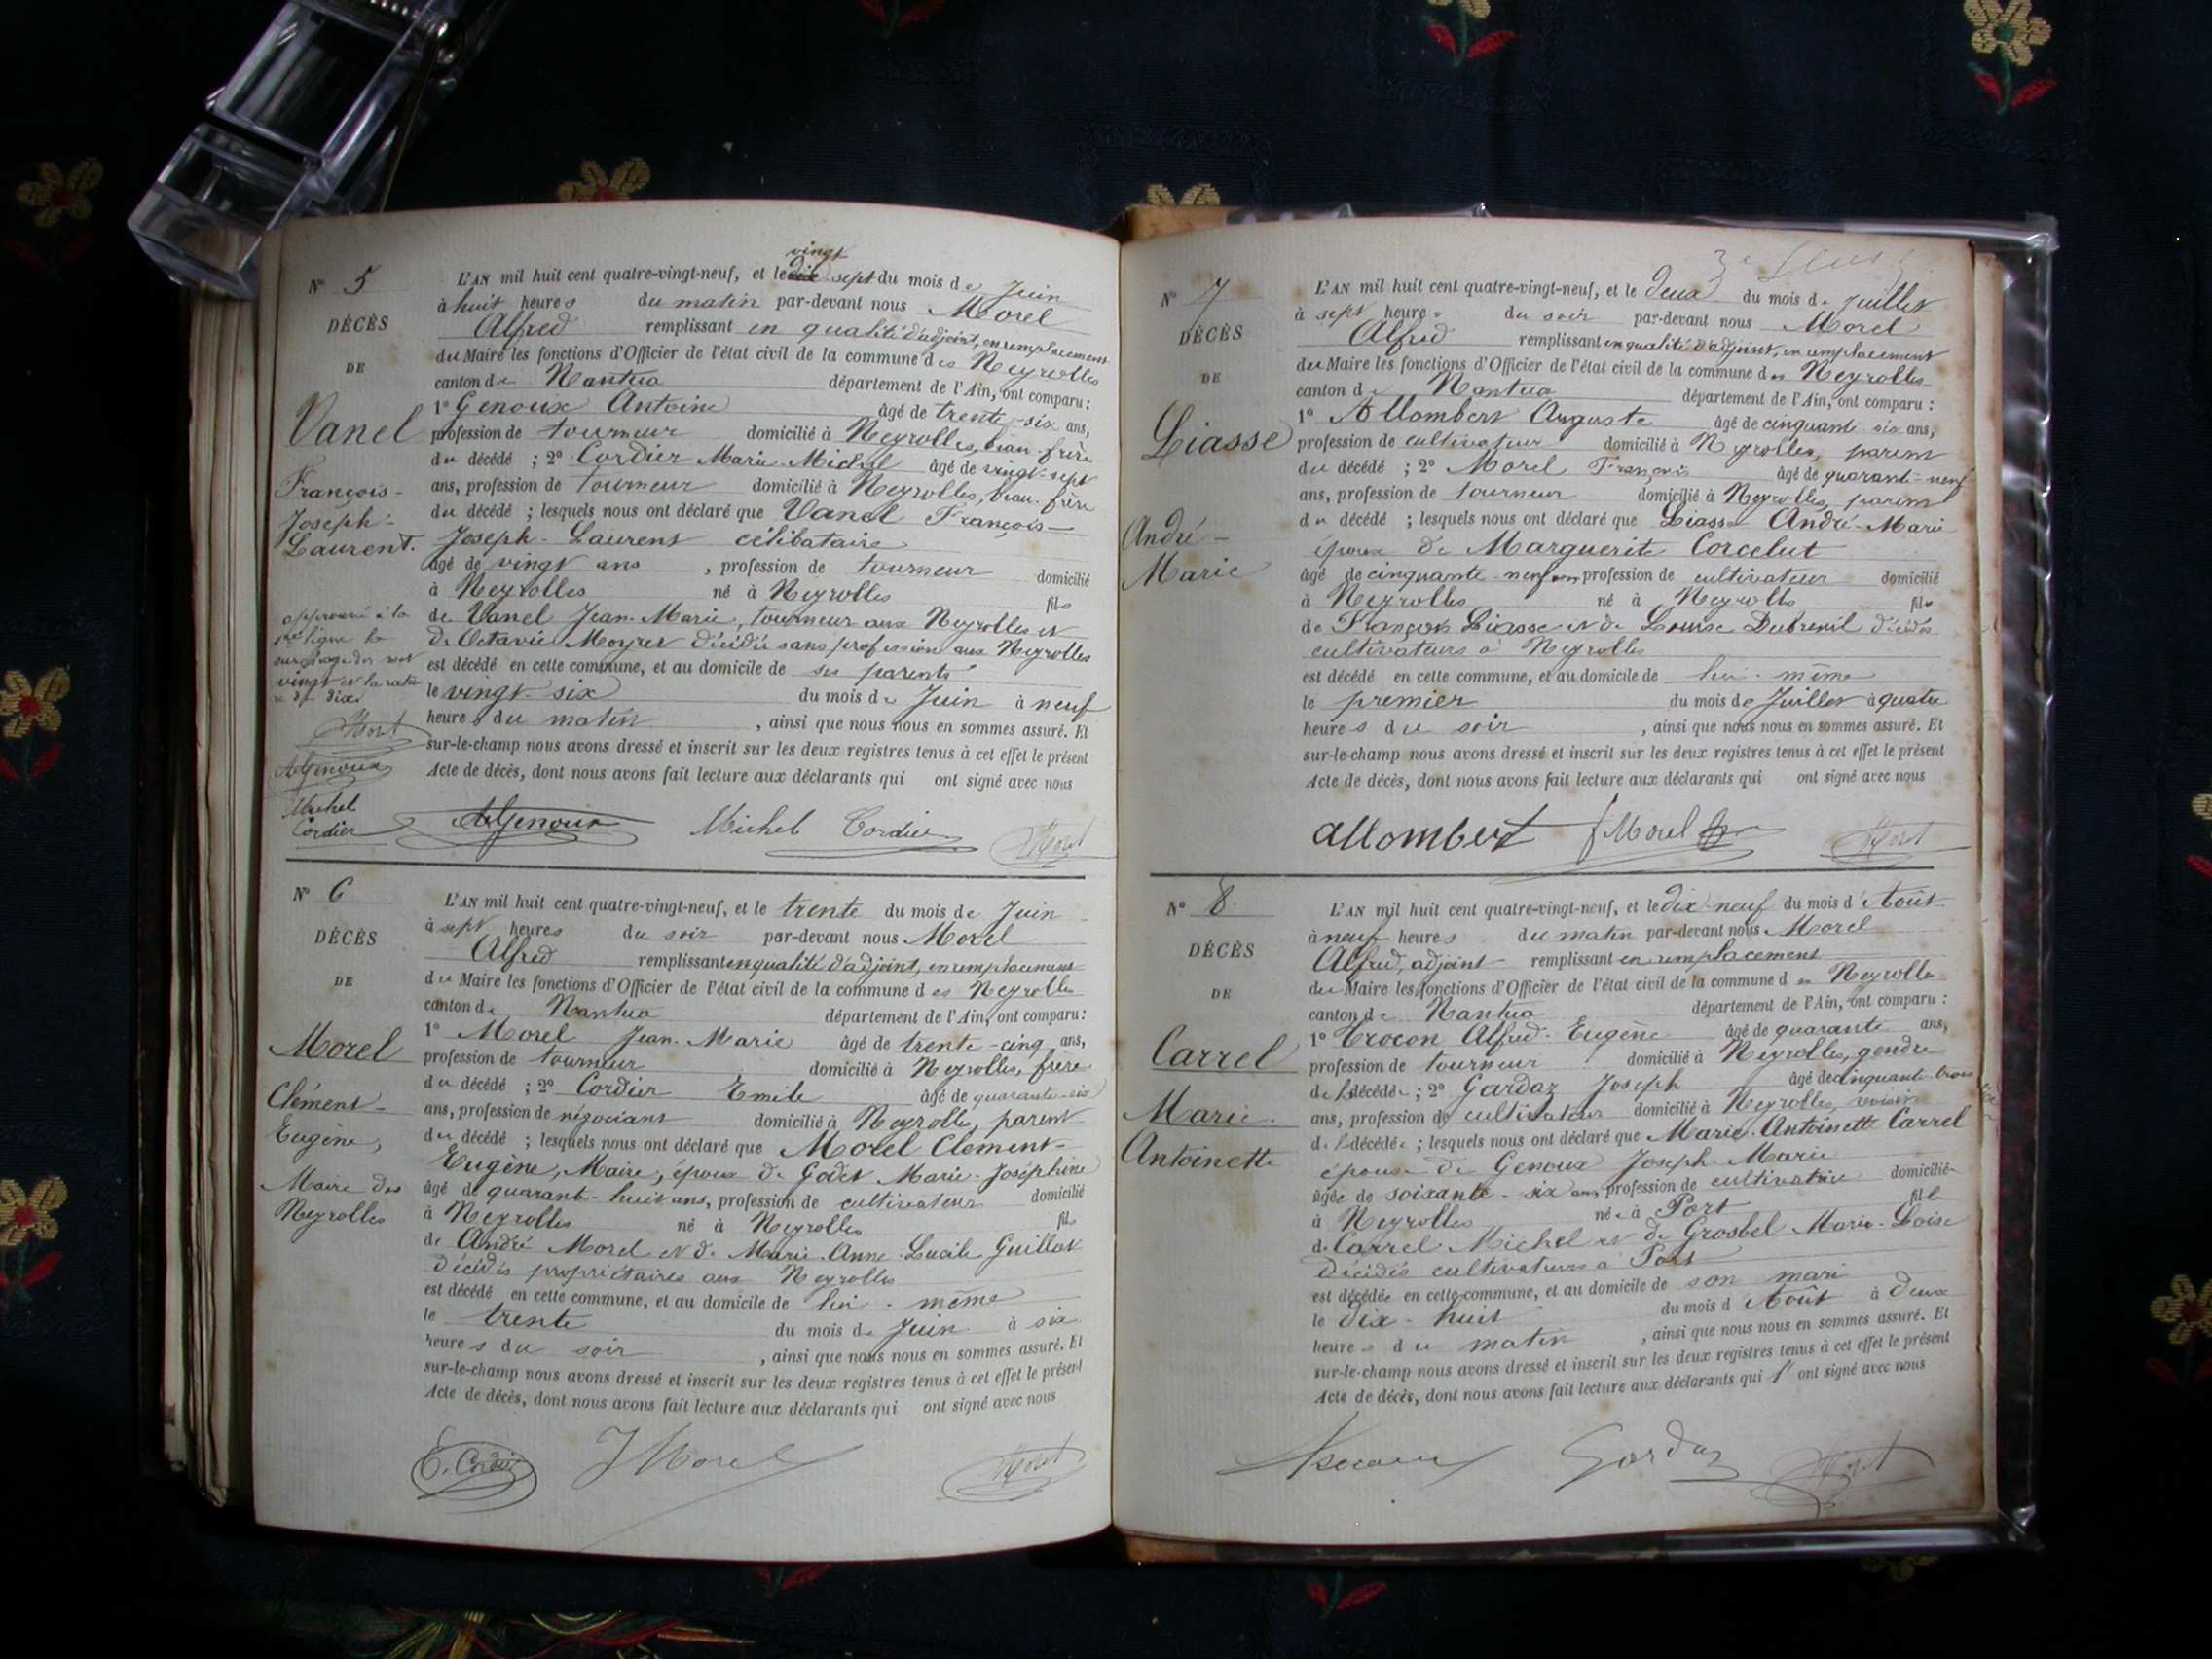 N° 5
DÉCÈS
DE
Vanel
François-
Joseph-
Laurent.
approuvé à la
1re ligne la
surcharge du mot
vingt et la ratu
re de dix
AGenoux
Michel
Cordier
vingt
L'AN mil huit cent quatre-vingt-neuf, et le dix sept du mois de Juin
à huit heures du matin par-devant nous Morel
Alfred remplissant en qualité d'adjoint, en remplacement
du Maire les fonctions d'Officier de l'état civil de la commune des Neyrolles
canton de Nantua département de l'Ain, ont comparu :
1° Genoux Antoine âgé de trente-six ans,
profession de tourneur domicilié à Neyrolles, beau-frère
du décédé ; 2° Cordier Marie Michel âgé de vingt-sept
ans, profession de tourneur domicilié à Neyrolles, beau-frère
du décédé ; lesquels nous ont déclaré que Vanel François-
Joseph-Laurent célibataire
âgé de vingt ans , profession de tourneur domicilié
à Neyrolles né à Neyrolles fils
de Vanel Jean-Marie, tourneur aux Neyrolles et
de Octavie Moyret décédée sans profession aux Neyrolles
est décédé en cette commune, et au domicile de ses parents
le vingt-six du mois de Juin à neuf
heures du matin , ainsi que nous nous en sommes assuré. Et
sur-le-champ nous avons dressé et inscrit sur les deux registres tenus à cet effet le présent
Acte de décès, dont nous avons fait lecture aux déclarants qui ont signé avec nous
AGenoux Michel Cordier
N° 6
DÉCÈS
DE
Morel
Clément-
Eugène,
Maire des
Neyrolles
L'AN mil huit cent quatre-vingt-neuf, et le trente du mois de Juin
à sept heures du soir par-devant nous Morel
Alfred remplissant en qualité d'adjoint, en remplacement
du Maire les fonctions d'Officier de l'état civil de la commune des Neyrolles
canton de Nantua département de l'Ain, ont comparu :
1° Morel Jean-Marie âgé de trente-cinq ans,
profession de tourneur domicilié à Neyrolles, frère
du décédé ; 2° Cordier Emile âgé de quarante-six
ans, profession de négociant domicilié à Neyrolles, parent
du décédé ; lesquels nous ont déclaré que Morel Clément-
Eugène, Maire, époux de Godet Marie-Joséphine
âgé de quarante-huit ans, profession de cultivateur domicilié
à Neyrolles né à Neyrolles fils
de André Morel et de Marie-Anne-Lucile Guillot
décédés propriétaires aux Neyrolles
est décédé en cette commune, et au domicile de lui-même
le trente du mois de Juin à six
heures du soir , ainsi que nous nous en sommes assuré. Et
sur-le-champ nous avons dressé et inscrit sur les deux registres tenus à cet effet le présent
Acte de décès, dont nous avons fait lecture aux déclarants qui ont signé avec nous
E. Cordier J Morel
N° 7
DÉCÈS
DE
Liasse
André-
Marie
L'AN mil huit cent quatre-vingt-neuf, et le deux du mois de Juillet
à sept heures du soir par-devant nous Morel
Alfred remplissant en qualité d'adjoint, en remplacement
du Maire les fonctions d'Officier de l'état civil de la commune des Neyrolles
canton de Nantua département de l'Ain, ont comparu :
1° Allombert Auguste âgé de cinquante six ans,
profession de cultivateur domicilié à Neyrolles, parent
du décédé ; 2° Morel François âgé de quarante-neuf
ans, profession de tourneur domicilié à Neyrolles, parent
du décédé ; lesquels nous ont déclaré que Liasse André-Marie
époux de Marguerite Corcelut
âgé de cinquante-neuf ans, profession de cultivateur domicilié
à Neyrolles né à Neyrolles fils
de François Liasse et de Louise Dubreuil décédés
cultivateurs à Neyrolles
est décédé en cette commune, et au domicile de lui-même
le premier du mois de Juillet à quatre
heures du soir , ainsi que nous nous en sommes assuré. Et
sur-le-champ nous avons dressé et inscrit sur les deux registres tenus à cet effet le présent
Acte de décès, dont nous avons fait lecture aux déclarants qui ont signé avec nous
allombert f Morel
N° 8
DÉCÈS
DE
Carrel
Marie-
Antoinette
L'AN mil huit cent quatre-vingt-neuf, et le dix-neuf du mois d'Août
à neuf heures du matin par-devant nous Morel
Alfred, adjoint remplissant en remplacement
du Maire les fonctions d'Officier de l'état civil de la commune des Neyrolles
canton de Nantua département de l'Ain, ont comparu :
1° Crocon Alfred-Eugène âgé de quarante ans,
profession de tourneur domicilié à Neyrolles, gendre
de la décédée ; 2° Gardaz Joseph âgé de cinquante-trois
ans, profession de cultivateur domicilié à Neyrolles, voisin
de la décédée ; lesquels nous ont déclaré que Marie-Antoinette Carrel
épouse de Genoux Joseph-Marie
âgée de soixante-six ans, profession de cultivatrice domiciliée
à Neyrolles née à Port fille
de Carrel Michel et de Grosbel Marie-Loise
décédés cultivateurs à Port
est décédée en cette commune, et au domicile de son mari
le dix-huit du mois d'Août à deux
heures du matin , ainsi que nous nous en sommes assuré. Et
sur-le-champ nous avons dressé et inscrit sur les deux registres tenus à cet effet le présent
Acte de décès, dont nous avons fait lecture aux déclarants qui ont signé avec nous
Gardaz